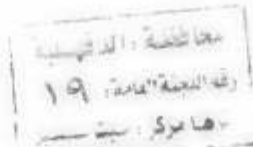 محافظة : الدقهلية
رقم اللجنة "العامة : ١٩
مركز : ميت